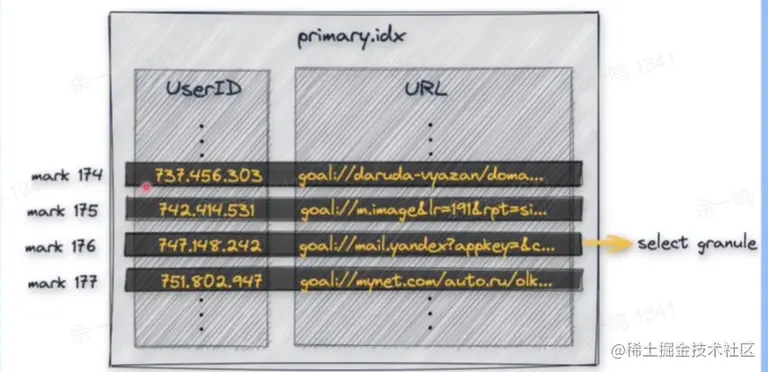 primary.idx
UserID URL
mark 174 737.456.303 goal://daruda-vyazan/doma...
mark 175 742.414.531 goal://m.image&lr=191&rpt=si...
mark 176 747.148.242 goal://mail.yandex?appkey=&c... select granule
mark 177 751.802.947 goal://mynet.com/auto.ru/olk...
@稀土掘金技术社区